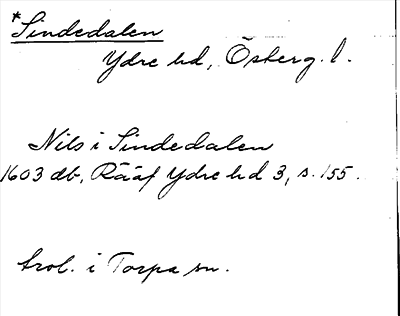 *Sindedalen
Ydre hd, Österg. l.
Nils i Sindedalen
1603 db, Rääf Ydre hd 3, s. 155.
trol. i Torpa sn.